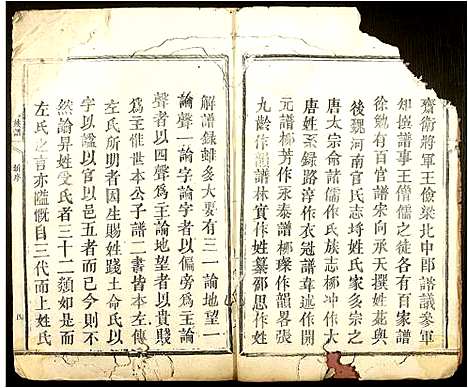 齊衛將軍王儉梁北中郎諮議參軍
知撰譜事王僧儒之徒各有百家譜
徐勉有百官譜宋何承天撰姓苑與
後魏河南官氏志埒姓氏家多宗之
唐太宗命諸儒作氏族志柳冲作大
唐姓系錄路淳作衣冠譜韋述作開
元譜柳芳作永泰譜柳璨作韻畧張
九齡作韻譜林寶作姓纂邵思作姓
解譜録雖多大要有三一論地望一
論聲一論字論字者以偏旁爲主論
聲者以四聲爲主論地望者以貴賤
爲主惟世本公子譜二書皆本左傳
左氏所明者因生賜姓踐土命氏以
字以諡以官以邑五者而已今則不
然論昇姓受氏者三十二類如是而
左氏之言亦隘慨自三代而上姓氏
族譜
類序
四